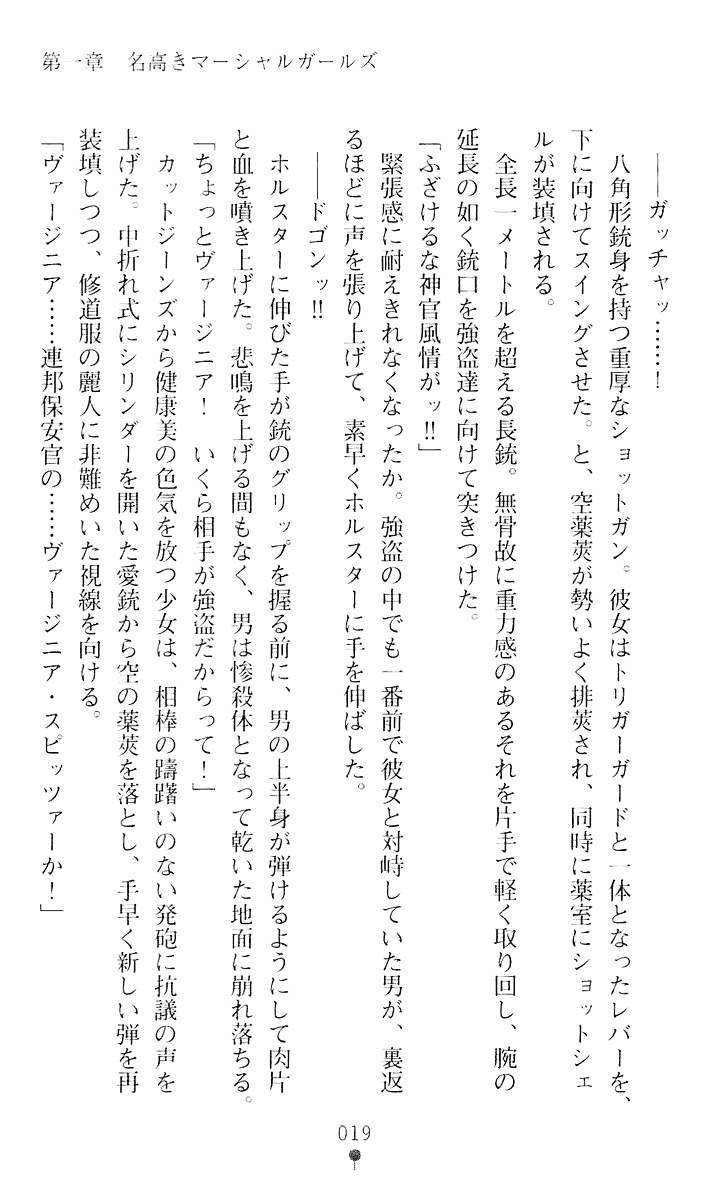 第一章　名高きマーシャルガールズ
――ガッチャッ……！
八角形銃身を持つ重厚なショットガン。彼女はトリガーガードと一体となったレバーを、
下に向けてスイングさせた。と、空薬莢が勢いよく排莢され、同時に薬室にショットシェ
ルが装填される。
全長一メートルを超える長銃。無骨故に重力感のあるそれを片手で軽く取り回し、腕の
延長の如く銃口を強盗達に向けて突きつけた。
「ふざけるな神官風情がッ!!」
緊張感に耐えきれなくなったか。強盗の中でも一番前で彼女と対峙していた男が、裏返
るほどに声を張り上げて、素早くホルスターに手を伸ばした。
――ドゴンッ!!
ホルスターに伸びた手が銃のグリップを握る前に、男の上半身が弾けるようにして肉片
と血を噴き上げた。悲鳴を上げる間もなく、男は惨殺体となって乾いた地面に崩れ落ちる。
「ちょっとヴァージニア！　いくら相手が強盗だからって！」
カットジーンズから健康美の色気を放つ少女は、相棒の躊躇いのない発砲に抗議の声を
上げた。中折れ式にシリンダーを開いた愛銃から空の薬莢を落とし、手早く新しい弾を再
装填しつつ、修道服の麗人に非難めいた視線を向ける。
「ヴァージニア……連邦保安官の……ヴァージニア・スピッツァーか！」
019